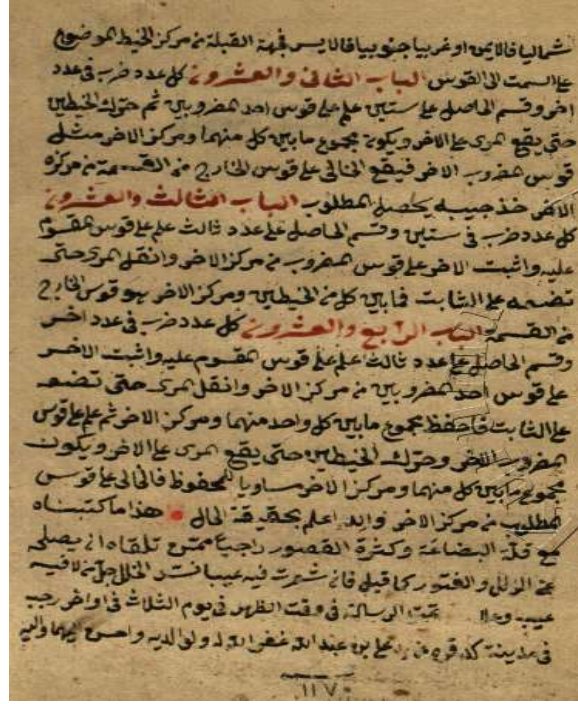 شماليا فالايمن او غربيا جنوبيا فالايسر فجهة القبلة من مركز الخيط الموضوع
على السمت الى القوس الباب الثانى والعشرون كل عدد ضرب فى عدد
اخر وقسم الحاصل على ستين علم على قوس احد المضروبين ثم حرك الخيطين
حتى يقع المرى على الاخر ويكون مجموع ما بين كل منهما ومركز الاخر مثل
قوس المضروب الاخر فيقع الخالى على قوس الخارج من القسمة من مركزه
الاخر خذ جيبه يحصل المطلوب الباب الثالث والعشرون
كل عدد ضرب فى ستين وقسم الحاصل على عدد ثالث علم على قوس المقسوم
عليه واثبت الاخر على قوس المضروب من مركز الاخر وانقل المرى حتى
تضعه على الثابت فما بين كل من الخيطين ومركز الاخر هو قوس الخارج
من القسمة الباب الرابع والعشرون كل عدد ضرب فى عدد اخر
وقسم الحاصل على عدد ثالث علم على قوس المقسوم عليه واثبت الاخر
على قوس احد المضروبين من مركز الاخر وانقل المرى حتى تضعه
على الثابت فاحفظ مجموع ما بين كل واحد منهما ومركز الاخر ثم علم على قوس
المضروب الاخر وحرك الخيطين حتى يقع المرى على الاخر ويكون
مجموع ما بين كل منهما ومركز الاخر مساويا للمحفوظ فالخالى على قوس
المطلوب من مركز الاخر والله اعلم بحقيقة الحال هذا ما كتبناه
مع قلة البضاعة وكثرة القصور راجيا ممن تلقاه ان يصلحه
عن الزلل والفتور كما قيل فان شمت فيه عيبا فسد الخلل جل من لا فيه
عيب وعلا تمت الرسالة فى وقت الظهر فى يوم الثلاث فى اواخر رجب
فى مدينة على بن عبد الله غفر الله له ولوالديه واحسن اليهما واليه
١١٧٠